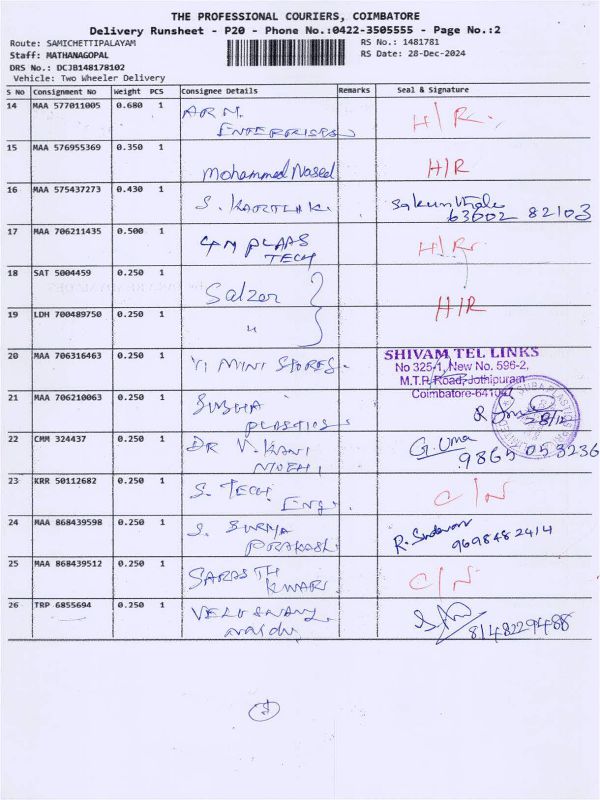 THE PROFESSIONAL COURIERS, COIMBATORE
Delivery Runsheet - P20 - Phone No.:0422-3505555 - Page No.:2
Route: SAMICHETTIPALAYAM RS No.: 1481781
Staff: MATHANAGOPAL RS Date: 28-Dec-2024
DRS No.: DCJB148178102
Vehicle: Two Wheeler Delivery
S No Consignment No Weight PCS Consignee Details Remarks Seal & Signature
14 MAA 577011005 0.680 1 ARM H/R
ENTERPRISES
15 MAA 576955369 0.350 1
Mohammed Naseed H/R
16 MAA 575437273 0.430 1 S. KARTHIK.
63002 82103
17 MAA 706211435 0.500 1 H/R
TECH
18 SAT 5004459 0.250 1
Salzer H/R
19 LDH 700489750 0.250 1
"
20 MAA 706316463 0.250 1 VI MINI STORES. SHIVAM TEL LINKS
No 325-1, New No. 596-2,
M.T.P. Road, Jothipuram
Coimbatore-641047
21 MAA 706210063 0.250 1 SUBHA
PLASTICS 28/12
22 CMM 324437 0.250 1 DR V. KANI G. Uma
MOZHI 9865053236
23 KRR 50112682 0.250 1 S. TECH C/N
Eng.
24 MAA 868439598 0.250 1 S. SURYA
PRAKASH 9698482414
25 MAA 868439512 0.250 1 SARASTH C/N
KUMAR
26 TRP 6855694 0.250 1 VELUSWAMY
Naidu 8148229488